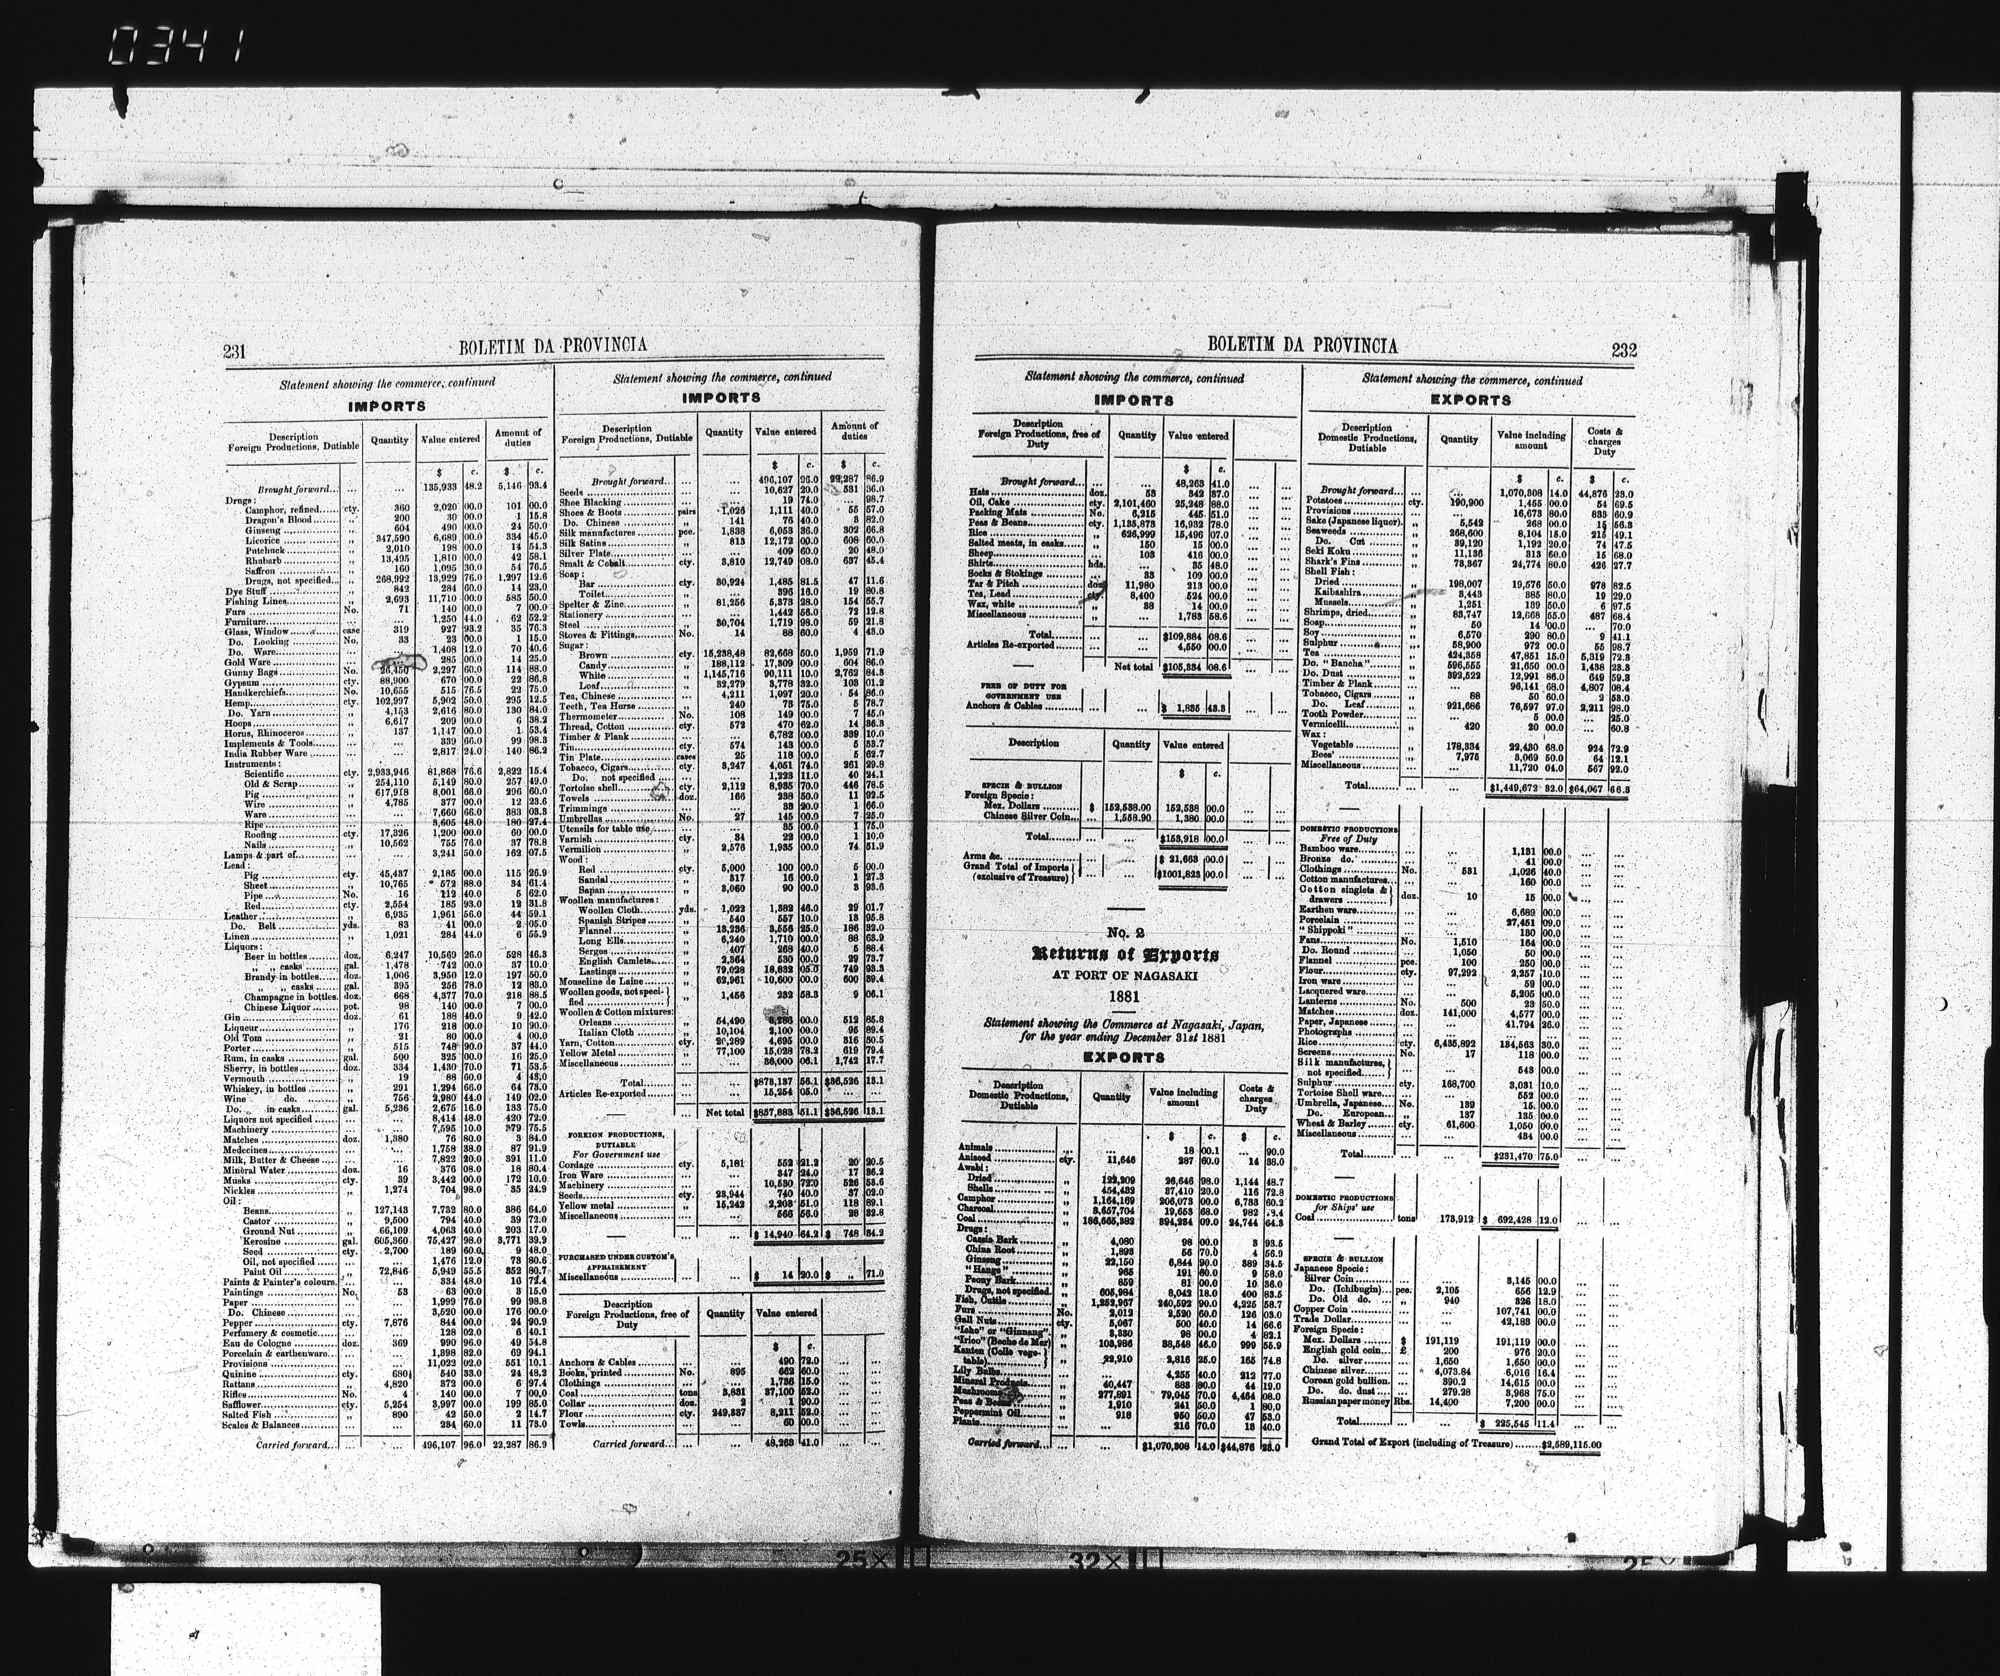 0341
231
BOLETIM DA PROVINCIA
Statement showing the commerce, continued
IMPORTS
Description Foreign Productions, Dutiable | Quantity | Value entered | Amount of duties
$ c. $ c.
Brought forward... ... ... 135,933 48.2 5,146 93.4
Drugs:
Camphor, refined...... cty. 360 2,020 00.0 101 00.0
Dragon's Blood......... „ 200 30 00.0 1 15.8
Ginseng .................. „ 604 490 00.0 24 50.0
Licorice .................. „ 347,590 6,689 00.0 334 45.0
Putchuck ................ „ 2,010 198 00.0 14 54.3
Rhubarb ................. „ 13,495 1,810 00.0 42 58.1
Saffron ................... „ 160 1,095 30.0 54 76.5
Drugs, not specified... „ 268,992 13,929 76.0 1,297 12.6
Dye Stuff .................. „ 842 284 60.0 14 23.0
Fishing Lines............... „ 2,693 11,710 00.0 585 50.0
Furs .......................... No. 71 140 00.0 7 00.0
Furniture.................... ... ... 1,250 44.0 62 52.2
Glass, Window............. case 319 927 93.2 35 76.3
Do. Looking ............ No. 33 23 00.0 1 15.0
Do. Ware................. ... ... 1,408 12.0 70 40.6
Gold Ware .................. ... 285 00.0 14 25.0
Gunny Bags................ No. 26,450 2,297 60.0 114 88.0
Gypsum ..................... cty. 88,900 670 00.0 22 86.8
Handkerchiefs............. No. 10,655 515 76.5 22 75.0
Hemp......................... cty. 102,997 5,902 50.0 295 12.5
Do. Yarn.................. „ 4,153 2,616 80.0 130 84.0
Hoops ........................ „ 6,617 209 00.0 6 38.2
Horus, Rhinoceros ....... „ 137 1,147 00.0 1 53.4
Implements & Tools...... ... ... 339 66.0 99 98.3
India Rubber Ware ...... ... ... 2,817 24.0 140 86.2
Instruments:
Scientific ................. cty. 2,933,946 81,868 76.6 2,822 15.4
Old & Scrap............. „ 254,110 5,149 80.0 257 49.0
Pig ......................... „ 617,918 8,001 66.0 296 60.0
Wire ....................... „ 4,785 377 00.0 12 23.6
Ware ...................... ... ... 7,660 66.0 383 03.3
Ripe ....................... ... ... 3,605 48.0 180 27.4
Roofing ................... cty. 17,326 1,200 00.0 60 00.0
Nails ....................... „ 10,562 755 76.0 37 78.8
Lamps & part of............ ... ... 3,241 50.0 162 07.5
Lead:
Pig ......................... cty. 45,437 2,185 00.0 115 26.9
Sheet ...................... „ 10,765 572 88.0 34 61.4
Pipe ....................... No. 16 112 40.0 5 62.0
Red......................... cty. 2,554 185 93.0 12 31.8
Leather ...................... „ 6,935 1,961 56.0 44 59.1
Do. Belt ................. yds. 83 41 00.0 2 05.0
Linen ......................... „ 1,021 284 44.0 6 55.9
Liquors:
Beer in bottles .......... doz. 6,247 10,569 26.0 528 46.3
„ „ casks .......... gal. 1,478 742 00.0 37 10.0
Brandy in bottles....... doz. 1,006 3,950 12.0 197 50.0
„ „ casks ....... gal. 395 256 78.0 12 83.0
Champagne in bottles. doz. 668 4,377 70.0 218 88.5
Chinese Liquor ........ pot. 98 140 00.0 7 00.0
Gin ............................ doz. 61 188 40.0 9 42.0
Liqueur....................... „ 176 218 00.0 10 90.0
Old Tom .................... „ 21 80 00.0 4 00.0
Porter ........................ „ 515 748 90.0 37 44.0
Rum, in casks .............. gal. 500 325 00.0 16 25.0
Sherry, in bottles .......... doz. 334 1,430 70.0 71 53.5
Vermouth ................... „ 19 88 60.0 4 43.0
Whiskey, in bottles ....... „ 291 1,294 66.0 64 73.0
Wine do. ....... „ 756 2,980 44.0 149 02.0
Do. in casks ............ gal. 5,236 2,675 16.0 133 75.0
Liquors not specified ..... ... ... 8,414 48.0 420 72.0
Machinery .................. ... ... 7,595 10.0 379 75.5
Matches ..................... doz. 1,380 76 80.0 3 84.0
Medecines................... ... ... 1,758 38.0 87 91.9
Milk, Butter & Cheese .... ... ... 7,822 20.0 391 11.0
Mineral Water .............. doz. 16 376 08.0 18 80.4
Musks ........................ cty. 39 3,442 00.0 172 10.0
Nickles ....................... „ 1,274 704 98.0 35 24.9
Oil:
Beans...................... „ 127,143 7,732 80.0 386 64.0
Castor ..................... „ 9,500 794 40.0 39 72.0
Ground Nut ............. „ 66,109 4,063 40.0 203 17.0
Kerosine .................. gal. 605,360 75,427 98.0 3,771 39.9
Seed ....................... cty. 2,700 189 60.0 9 48.0
Oil, not specified ....... ... ... 1,476 12.0 73 80.6
Paint Oil .................. „ 72,846 5,949 55.5 352 80.7
Paints & Painter's colours. ... ... 334 48.0 16 72.4
Paintings .................... No. 53 63 00.0 3 15.0
Paper ......................... ... ... 1,999 76.0 99 98.8
Do. Chinese............. ... ... 3,520 00.0 176 00.0
Pepper ....................... cty. 7,876 844 00.0 24 90.9
Perfumery & cosmetic.... ... ... 128 02.0 6 40.1
Eau de Cologne ............ doz. 369 990 96.0 49 54.8
Porcelain & earthenware... ... ... 1,398 82.0 69 94.1
Provisions ................... ... ... 11,022 02.0 551 10.1
Quinine ...................... cty. 680 540 33.0 24 48.2
Rattans ....................... „ 4,820 372 00.0 6 97.4
Rifles ......................... No. 4 140 00.0 7 00.0
Safflower..................... cty. 5,254 3,997 00.0 199 85.0
Salted Fish .................. „ 890 42 50.0 2 14.7
Scales & Balances.......... ... ... 234 60.0 11 73.0
Carried forward... ... ... 496,107 96.0 22,287 86.9
Statement showing the commerce, continued
IMPORTS
Description Foreign Productions, Dutiable | Quantity | Value entered | Amount of duties
$ c. $ c.
Brought forward... ... ... 496,107 96.0 22,287 86.9
Seeds ......................... ... ... 10,627 20.0 531 36.0
Shoe Blacking .............. ... ... 19 74.0 98.7
Shoes & Boots ............. pairs 1,026 1,111 40.0 55 57.0
Do. Chinese ............ „ 141 76 40.0 3 82.0
Silk manufactures ......... pce. 1,838 6,053 36.0 302 66.8
Silk Satins................... „ 813 12,172 00.0 608 60.0
Silver Plate.................. ... ... 409 60.0 20 48.0
Smalt & Cobalt............. cty. 3,810 12,749 08.0 637 45.4
Soap:
Bar ......................... cty. 30,924 1,485 81.5 47 11.6
Toilet...................... ... ... 396 16.0 19 80.8
Spelter & Zinc.............. „ 81,256 5,373 28.0 154 55.7
Stationery ................... ... ... 1,442 56.0 72 12.8
Steel .......................... „ 30,704 1,719 98.0 59 21.8
Stoves & Fittings........... No. 14 88 60.0 4 43.0
Sugar:
Brown ..................... cty. 15,238,48 82,668 50.0 1,959 71.9
Candy ..................... „ 188,112 17,309 00.0 604 86.0
White ..................... „ 1,145,716 90,111 10.0 2,762 84.3
Loaf........................ „ 32,279 3,778 32.0 103 01.2
Tea, Chinese ................ „ 4,211 1,097 20.0 54 86.0
Teeth, Tea Horse .......... „ 240 73 75.0 5 78.7
Thermometer............... No. 108 149 00.0 7 45.0
Thread, Cotton............. cty. 572 470 62.0 14 36.3
Timber & Plank ........... ... ... 6,782 00.0 339 10.0
Tin............................. cty. 574 143 00.0 5 53.7
Tin Plate..................... cases 25 118 00.0 5 62.7
Tobacco, Cigars............ cty. 3,247 4,051 74.0 261 29.8
Do. not specified ..... ... ... 1,223 11.0 40 24.1
Tortoise shell............... cty. 2,112 8,935 70.0 446 78.5
Towels ....................... doz. 166 238 50.0 11 92.5
Trimmings .................. ... ... 33 20.0 1 66.0
Umbrellas ................... No. 27 145 00.0 7 25.0
Utensils for table use...... ... ... 35 00.0 1 75.0
Varnish ...................... „ 34 22 00.0 1 10.0
Vermilion ................... „ 2,576 1,935 00.0 74 51.9
Wood:
Red ........................ cty. 5,000 100 00.0 5 00.0
Sandal ..................... „ 317 16 00.0 1 27.3
Sapan ..................... „ 3,060 90 00.0 3 93.6
Woollen manufactures:
Woollen Cloth........... yds. 1,022 1,382 46.0 29 01.7
Spanish Stripes ......... „ 540 557 10.0 13 95.8
Flannel.................... „ 13,236 3,556 25.0 186 32.0
Long Ells................. „ 6,240 1,710 00.0 88 63.9
Serges ..................... „ 407 268 40.0 5 88.4
English Camlets........ „ 2,364 530 00.0 29 73.7
Lastings................... „ 79,028 18,632 05.0 749 93.3
Mouseline de Laine ....... „ 62,961 10,600 00.0 600 39.4
Woollen goods, not specified „ 1,456 232 58.3 9 06.1
Woollen & Cotton mixtures:
Orleans ................... „ 54,490 00.0 512 85.8
Italian Cloth ............. „ 10,104 2,100 00.0 96 89.4
Yarn, Cotton............... cty. 20,289 4,695 00.0 316 50.5
Yellow Metal .............. „ 77,100 15,028 78.2 619 79.4
Miscellaneous .............. ... ... 36,000 06.1 1,742 17.7
Total.................. ... ... $873,137 56.1 $36,526 13.1
Articles Re-exported ...... ... ... 15,254 05.0 ... ...
Net total $857,883 51.1 $36,526 13.1
FOREIGN PRODUCTIONS, DUTIABLE
For Government use
Cordage ..................... cty. 5,181 552 21.2 20 20.5
Iron Ware ................... ... ... 347 24.0 17 36.2
Machinery .................. ... ... 10,530 72.0 526 53.6
Seeds......................... cty. 23,944 740 40.0 37 02.0
Yellow metal ............... „ 15,242 2,203 51.0 118 89.1
Miscellaneous .............. ... ... 566 56.0 28 32.8
$ 14,940 64.2 $ 748 34.2
PURCHASED UNDER CUSTOM'S, APPRAISEMENT
Miscellaneous .............. ... ... $ 14 20.0 $ „ 71.0
Description Foreign Productions, free of Duty | Quantity | Value entered
$ c.
Anchors & Cables .......... ... ... 490 72.0 ... ...
Books, printed ............. No. 895 662 60.0 ... ...
Clothings .................... ... ... 1,736 15.0 ... ...
Coal .......................... tons 3,831 37,100 52.0 ... ...
Collar ........................ doz. 2 1 90.0 ... ...
Flour ......................... cty. 249,337 8,211 52.0 ... ...
Towls......................... ... ... 60 00.0 ... ...
Carried forward... ... ... 48,263 41.0 ... ...
BOLETIM DA PROVINCIA
232
Statement showing the commerce, continued
IMPORTS
Description Foreign Productions, free of Duty | Quantity | Value entered
$ c.
Brought forward... ... ... 48,263 41.0 ... ...
Hats .......................... doz. 53 342 37.0 ... ...
Oil, Cake .................... cty. 2,101,460 25,248 88.0 ... ...
Packing Mats .............. No. 6,215 445 51.0 ... ...
Peas & Beans............... cty. 1,135,873 16,932 78.0 ... ...
Rice .......................... „ 626,999 15,496 07.0 ... ...
Salted meats, in casks..... „ 150 15 00.0 ... ...
Sheep......................... „ 103 416 00.0 ... ...
Shirts......................... hds. ... 35 48.0 ... ...
Socks & Stokings .......... ... 33 109 00.0 ... ...
Tar & Pitch ................. doz 11,980 213 00.0 ... ...
Tea, Lead ................... cty 8,400 524 00.0 ... ...
Wax, white ................. „ 38 14 00.0 ... ...
Miscellaneous .............. „ ... 1,783 58.6 ... ...
Total.................. ... ... $109,884 08.6 ... ...
Articles Re-exported ...... ... ... 4,550 00.0 ... ...
Net total $105,334 08.6
FREE OF DUTY FOR GOVERNMENT USE
Anchors & Cables .......... ... ... $ 1,835 43.3 ... ...
Description | Quantity | Value entered
$ c.
SPECIE & BULLION
Foreign Specie:
Mex. Dollars ............ $ 152,538.00 152,538 00.0 ... ...
Chinese Silver Coin... ... 1,558.90 1,380 00.0 ... ...
Total.................. ... ... $153,918 00.0 ... ...
Arms &c. .................... ... ... $ 21,663 00.0 ... ...
Grand Total of Imports (exclusive of Treasure) ... ... $1001,823 00.0 ... ...
No. 2
Returns of Exports
AT PORT OF NAGASAKI
1881
Statement showing the Commerce at Nagasaki, Japan,
for the year ending December 31st 1881
EXPORTS
Description Domestic Productions, Dutiable | Quantity | Value including amount | Costs & charges Duty
$ c. $ c.
Animals ...................... ... ... 18 00.1 ... 90.0
Aniseed ...................... cty. 11,646 287 60.0 14 38.0
Awabi:
Dried ...................... „ 122,209 26,646 98.0 1,144 48.7
Shells ...................... „ 454,432 37,410 20.0 116 72.8
Camphor .................... „ 1,164,169 206,073 00.0 6,783 60.2
Charcoal..................... „ 3,657,704 19,653 68.0 982
Coal .......................... „ 186,665,382 394,234 09.0 24,744 64.3
Drugs:
Cassia Bark .............. „ 4,080 98 00.0 3 93.5
China Root .............. „ 1,893 56 70.0 4 56.9
Ginseng................... „ 22,150 6,844 90.0 389 34.5
"Hange" .................. „ 965 191 60.0 9 58.0
Peony Bark.............. „ 859 81 00.0 10 36.0
Drugs, not specified. „ 605,984 8,042 18.0 400 83.5
Fish, Cuttle................. „ 1,252,967 240,592 90.0 4,225 58.7
Furs .......................... No. 2,012 2,520 60.0 126 03.0
Gall Nuts.................... cty. 5,067 500 40.0 14 66.6
"Icho" or "Ginnang". „ 3,330 98 00.0 4 82.1
"Irico" (Beche de Mer) „ 103,986 38,548 46.0 999 55.9
Kanten (Colle vegetable)........ „ 22,910 2,816 25.0 165 74.8
Lily Bulbs................... ... 4,255 40.0 212 77.0
Mineral Products........... „ 40,447 883 80.0 44 19.0
Mushrooms „ 277,891 79,045 70.0 4,454 08.0
Peas & Beans............... „ 1,910 241 50.0 1 80.0
Peppermint Oil............. „ 918 950 50.0 47 53.0
Plants......................... ... 216 70.0 13 40.0
Carried forward... ... ... $1,070,308 14.0 $44,876 23.0
Statement showing the commerce, continued
EXPORTS
Description Domestic Productions, Dutiable | Quantity | Value including amount | Costs & charges Duty
$ c. $ c.
Brought forward... ... ... 1,070,308 14.0 44,876 23.0
Potatoes ..................... cty. 190,900 1,455 00.0 54 69.5
Provisions ................... ... 16,673 80.0 833 60.9
Sake (Japanese liquor). „ 5,542 268 00.0 15 56.3
Seaweeds .................... „ 268,600 8,104 15.0 215 49.1
Do. Cut ............... „ 39,120 1,192 20.0 74 47.5
Seki Koku................... „ 11,136 313 60.0 15 68.0
Shark's Fins ................ „ 73,367 24,774 80.0 426 27.7
Shell Fish:
Dried ...................... „ 198,007 19,576 50.0 978 82.5
Kaibashira............... „ 3,443 385 80.0 19 29.0
Mussels................... „ 1,251 139 50.0 6 97.5
Shrimps, dried............. „ 83,747 12,668 55.0 487 68.4
Soap.......................... „ 50 14 00.0 ... 70.0
Soy ........................... „ 6,570 290 80.0 9 41.1
Sulphur ...................... „ 58,900 972 00.0 55 98.7
Tea ........................... „ 424,358 47,851 15.0 5,319 72.3
Do. "Bancha"............... „ 596,555 21,650 00.0 1,438 23.3
Do. Dust .................... „ 392,522 12,991 86.0 649 59.3
Timber & Plank ........... ... ... 96,141 68.0 4,807 08.4
Tobacco, Cigars............ „ 88 50 60.0 2 53.0
Do. Leaf............. „ 921,686 76,597 97.0 2,211 98.0
Tooth Powder.............. ... 5 00.0 ... 25.0
Vermicelli................... „ 420 20 00.0 ... 60.8
Wax:
Vegetable ................ „ 178,334 22,430 68.0 924 72.9
Bees' ...................... „ 7,975 3,069 50.0 64 12.1
Miscellaneous .............. ... ... 11,720 04.0 567 92.0
Total.................. ... ... $1,449,672 32.0 $64,067 66.3
DOMESTIC PRODUCTIONS
Free of Duty
Bamboo ware............... ... ... 1,131 00.0 ... ...
Bronze do. ............... ... ... 41 00.0 ... ...
Clothings .................... No. 531 1,026 40.0 ... ...
Cotton manufactures...... ... ... 160 00.0 ... ...
Cotton singlets & drawers ................. doz. 10 15 00.0 ...
Earthen ware............... ... ... 6,689 00.0 ... ...
Porcelain .................... ... ... 27,451 09.0 ... ...
"Shippoki" .................. ... ... 130 00.0 ... ...
Fans........................... No. 1,510 164 00.0 ... ...
Do. Round ................. „ 1,050 50 00.0 ... ...
Flannel ...................... pce. 100 250 00.0 ... ...
Flour.......................... cty. 97,292 2,257 10.0 ... ...
Iron ware .................... ... ... 59 00.0 ... ...
Lacquered ware............ ... ... 5,205 00.0 ... ...
Lanterns ..................... No. 500 23 50.0 ... ...
Matches ..................... doz. 141,000 4,577 00.0 ... ...
Paper, Japanese ............ ... ... 41,794 26.0 ... ...
Photographs ................ ... ...
Rice ........................... cty. 6,435,892 134,563 30.0 ... ...
Screens....................... No. 17 118 00.0 ... ...
Silk manufactures, not specified......... ... ... 543 00.0 ... ...
Sulphur ...................... cty. 168,700 3,031 10.0 ... ...
Tortoise Shell ware........ ... ... 552 00.0 ... ...
Umbrella, Japanese....... No. 139 15. 00.0 ... ...
Do. European... „ 137 135 00.0 ... ...
Wheat & Barley ........... cty. 61,600 1,050 00.0 ... ...
Miscellaneous .............. ... ... 434 00.0 ... ...
Total.................. ... ... $231,470 75.0 ... ...
DOMESTIC PRODUCTIONS
for Ships' use
Coal........................... tons 173,912 $ 692,428 12.0 ... ...
SPECIE & BULLION
Japanese Specie:
Silver Coin .............. ... ... 3,145 00.0 ... ...
Do. (Ichibugin)... pce. 2,105 656 12.9 ... ...
Do. Old do. ... „ 940 326 18.0 ... ...
Copper Coin ................ ... ... 107,741 00.0 ... ...
Trade Dollar................ ... ... 42,183 00.0 ... ...
Foreign Specie:
Mex. Dollars ............ $ 191,119 191,119 00.0 ... ...
English gold coin... £ 200 976 20.0 ... ...
Do. silver........... ... 1,650 1,650 00.0 ... ...
Chinese silver........... ... 4,073.84 6,016 16.4 ... ...
Corean gold bullion.. ... 390.2 14,615 00.0 ... ...
Do. do. dust ... ... 279.28 3,968 75.0 ... ...
Russian paper money Rbs. 14,400 7,200 00.0 ... ...
Total.................. ... ... $ 225,545 11.4 ... ...
Grand Total of Export (including of Treasure) ....... $2,589,115.00
25×
32×